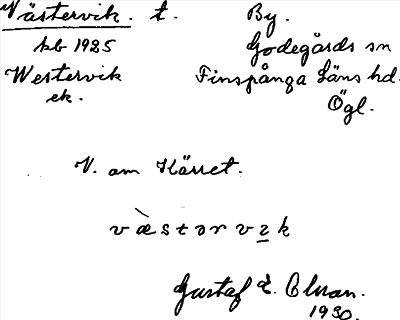 Västervik. t. By.
kb 1925 Godegårds sn
Westervik Finspånga Läns hd.
ek. Ögl.
V. om Kärret.
v æ̀ s t ə r v ɪ k
Gustaf E. Olsson.
1930.